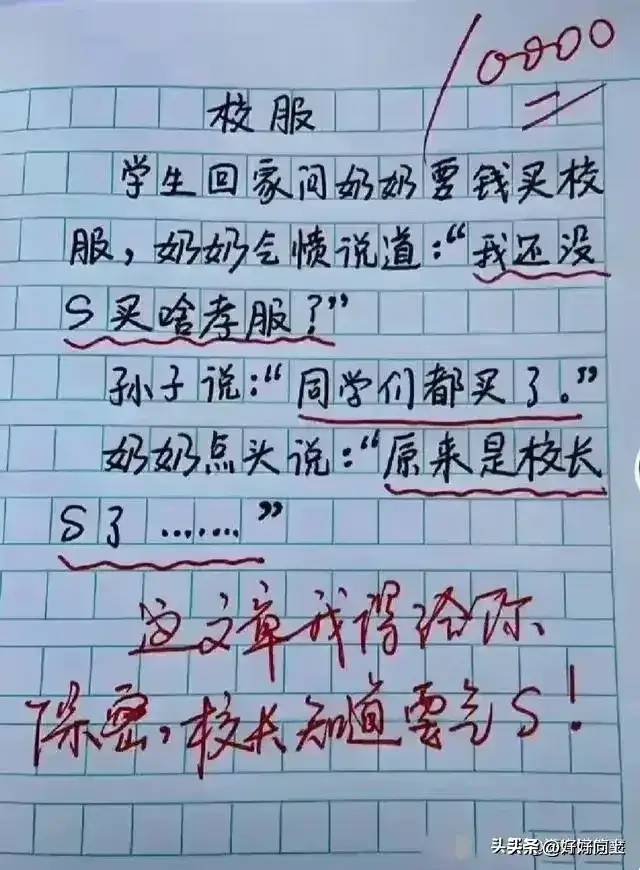 10000
校服
学生回家问奶奶要钱买校
服，奶奶气愤说道：“我还没
S买啥孝服？”
孙子说：“同学们都买了。”
奶奶点头说：“原来是校长
S了.......”
这文章我得给你
保密，校长知道要气S！
头条@好好同学